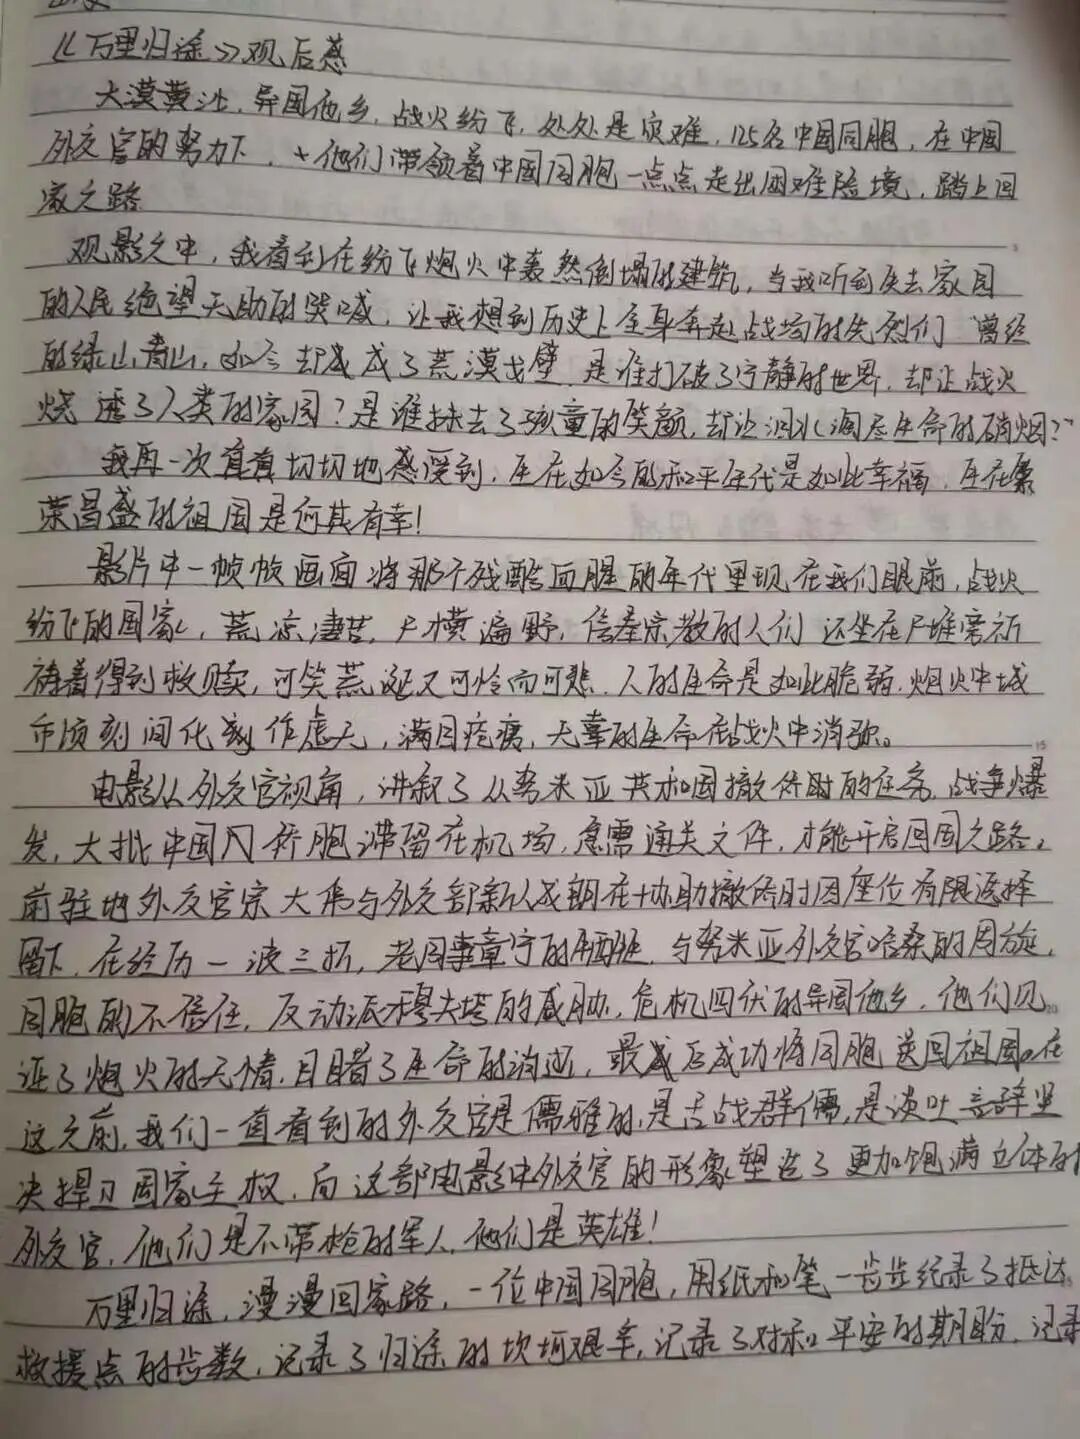 《万里归途》观后感
大漠黄沙,异国他乡,战火纷飞,处处是灾难,125名中国同胞,在中国
外交官的努力下,他们带领着中国同胞一点点走出困难险境,踏上回
家之路
观影之中,我看到在纷飞炮火中轰然倒塌的建筑,当我听到失去家园
的人民绝望无助的哭喊,让我想到历史上全身奔赴战场的先烈们 曾经
的绿山青山,如今却成了荒漠戈壁.是谁打破了宁静的世界,却让战火
烧透了人类的家园?是谁抹去了孩童的笑颜,却让泪水淌尽生命的硝烟?
我再一次真真切切地感受到,生在如今的和平年代是如此幸福,生在繁
荣昌盛的祖国是何其有幸!
影片中一帧帧画面将那个残酷血腥的年代里现在我们眼前,战火
纷飞的国家,荒凉凄苦,尸横遍野,信奉宗教的人们还坐在尸堆旁祈
祷着得到救赎,可笑荒诞又可怜而可悲.人的生命是如此脆弱.炮火中城
市顷刻间化作虚无,满目疮痍,无辜的生命在战火中消弥。
15
电影从外交官视角,讲叙了从努米亚共和国撤侨时的任务.战争爆
发,大批中国侨胞滞留在机场,急需通关文件,才能开启回国之路,
前驻地外交官宗大伟与外交部新人成朗在协助撤侨时因座位有限选择
留下,在经历一波三折,老同事章宁的牺牲,与努米亚外交官哈桑的周旋,
同胞的不信任,反动派穆夫塔的威胁,危机四伏的异国他乡,他们见
20
证了炮火的无情,目睹了生命的消逝,最后成功将同胞送回祖国。在
这之前,我们一直看到的外交官是儒雅的,是舌战群儒,是谈吐言辞坚
决捍卫国家主权,向这部电影中外交官的形象塑造了更加饱满立体的
外交官,他们是不带枪的军人,他们是英雄!
万里归途,漫漫回家路,一位中国同胞,用纸和笔一步步纪录了抵达
救援点的步数,记录了归途的坎坷艰辛,记录了对和平安的期盼,记录